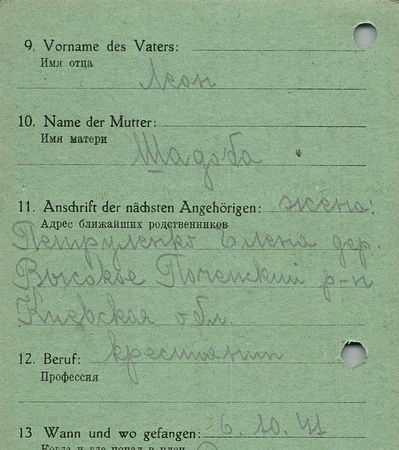 9. Vorname des Vaters:
Имя отца
Леон
10. Name der Mutter:
Имя матери
Шадоба
11. Anschrift der nächsten Angehörigen: жена.
Адрес ближайших родственников
Петруленко Елена дер.
Высокое р-н
Киевская обл.
12. Beruf: крестьянин
Профессия
13 Wann und wo gefangen: 6.10.41
Когда и где попал в плен